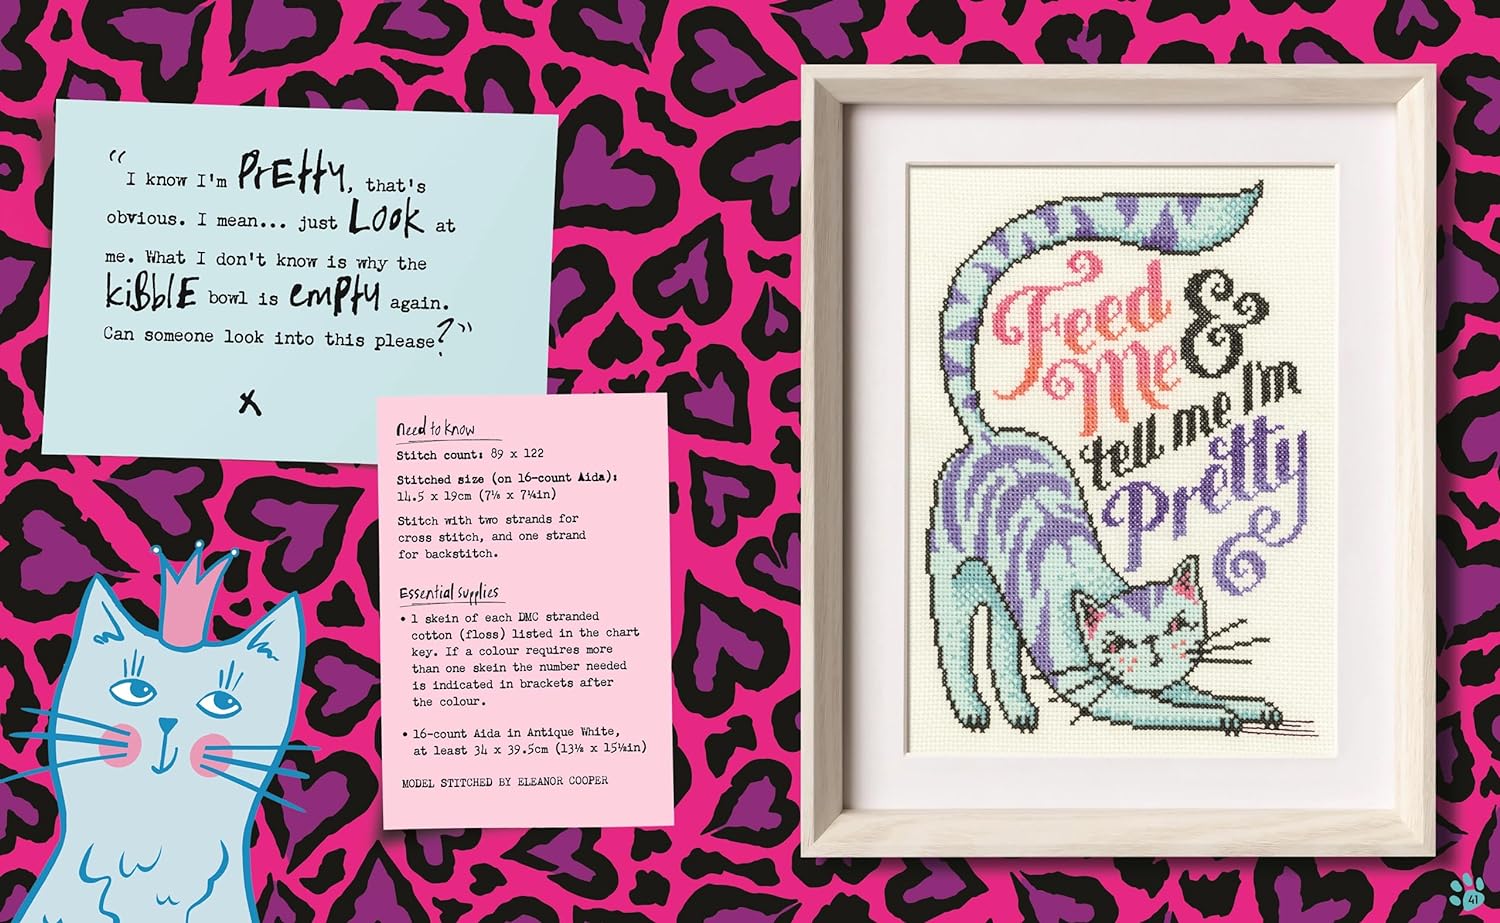 “I know I'm PrEttY, that's
obvious. I mean... just LOOK at
me. What I don't know is why the
kiBBlE bowl is emPty again.
Can someone look into this please?”
x
need to know
Stitch count: 89 x 122
Stitched size (on 16-count Aida):
14.5 x 19cm (7⅛ x 7¼in)
Stitch with two strands for
cross stitch, and one strand
for backstitch.
Essential supplies
• 1 skein of each DMC stranded
cotton (floss) listed in the chart
key. If a colour requires more
than one skein the number needed
is indicated in brackets after
the colour.
• 16-count Aida in Antique White,
at least 34 x 39.5cm (13½ x 15½in)
MODEL STITCHED BY ELEANOR COOPER
Feed
Me &
tell me I'm
Pretty
41